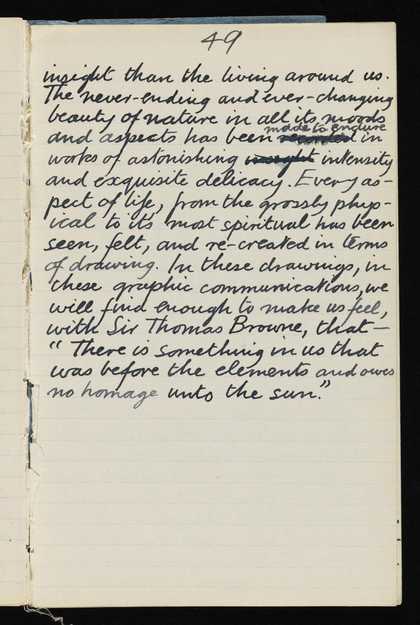 49
insight than the living around us.
The never-ending and ever-changing
beauty of nature in all its moods
made to endure
and aspects has been recorded in
works of astonishing insight intensity
and exquisite delicacy. Every as-
pect of life, from the grossly phys-
ical to its most spiritual has been
seen, felt, and re-created in terms
of drawing. In these drawings, in
these graphic communications, we
will find enough to make us feel,
with Sir Thomas Browne, that—
“There is something in us that
was before the elements and owes
no homage unto the sun.”